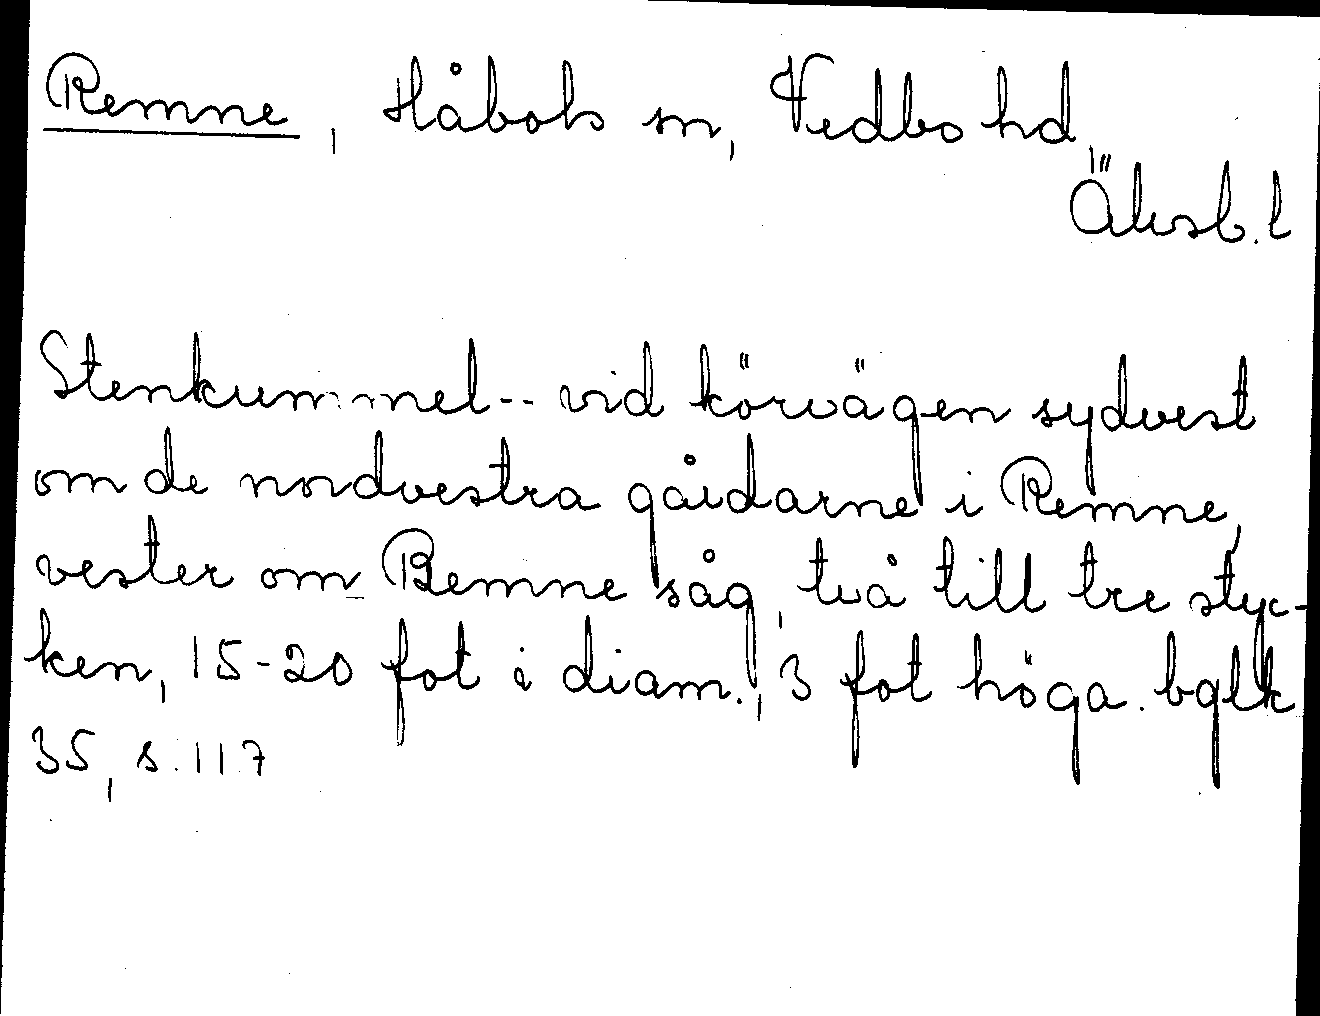 Remne, Håbols sn, Vedbo hd,
Älvsb. l
Stenkummel -- vid körvägen sydvest
om de nordvestra gårdarne i Remne,
vester om Remne såg, två till tre styc-
ken, 15-20 fot i diam., 3 fot höga. bglk
35, s. 117